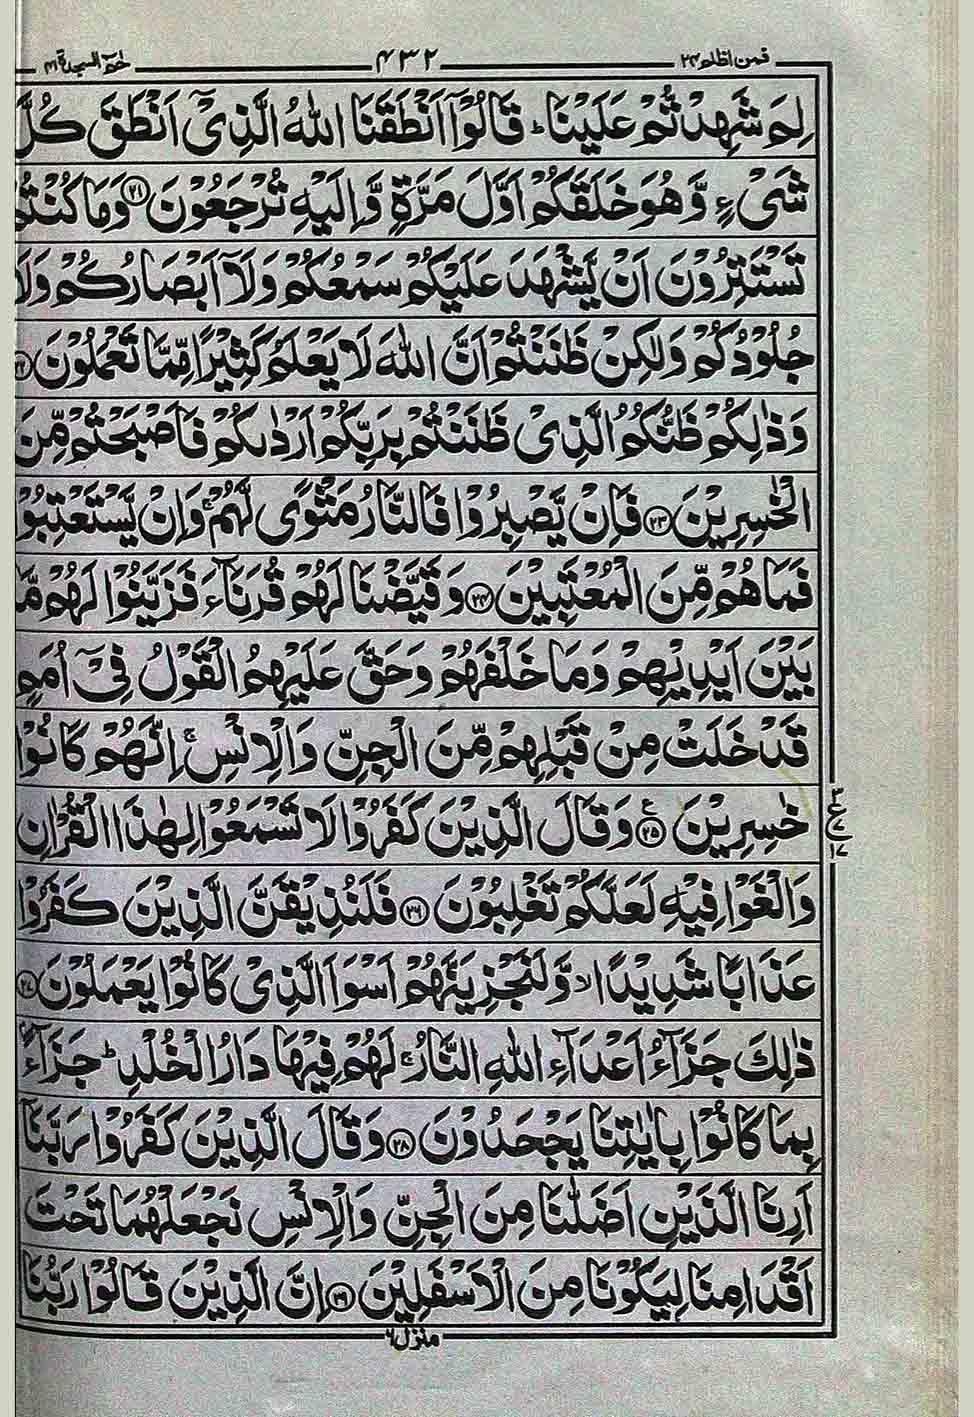 فمن اظلم ۲۴ ۴۳۲ حٰمٓ السجدة ۴۱
لِمَ شَهِدْتُّمْ عَلَيْنَا ؕ قَالُوْۤا اَنْطَقَنَا اللّٰهُ الَّذِيْۤ اَنْطَقَ كُلَّ
شَيْءٍ وَّهُوَ خَلَقَكُمْ اَوَّلَ مَرَّةٍ وَّاِلَيْهِ تُرْجَعُوْنَ ﴿۲۱﴾ وَمَا كُنْتُمْ
تَسْتَتِرُوْنَ اَنْ يَّشْهَدَ عَلَيْكُمْ سَمْعُكُمْ وَلَاۤ اَبْصَارُكُمْ وَلَا
جُلُوْدُكُمْ وَلٰكِنْ ظَنَنْتُمْ اَنَّ اللّٰهَ لَا يَعْلَمُ كَثِيْرًا مِّمَّا تَعْمَلُوْنَ ﴿۲۲﴾
وَذٰلِكُمْ ظَنُّكُمُ الَّذِيْ ظَنَنْتُمْ بِرَبِّكُمْ اَرْدٰىكُمْ فَاَصْبَحْتُمْ مِّنَ
الْخٰسِرِيْنَ ﴿۲۳﴾ فَاِنْ يَّصْبِرُوْا فَالنَّارُ مَثْوًى لَّهُمْ ۚ وَاِنْ يَّسْتَعْتِبُوْا
فَمَا هُمْ مِّنَ الْمُعْتَبِيْنَ ﴿۲۴﴾ وَقَيَّضْنَا لَهُمْ قُرَنَآءَ فَزَيَّنُوْا لَهُمْ مَّا
بَيْنَ اَيْدِيْهِمْ وَمَا خَلْفَهُمْ وَحَقَّ عَلَيْهِمُ الْقَوْلُ فِيْۤ اُمَمٍ
قَدْ خَلَتْ مِنْ قَبْلِهِمْ مِّنَ الْجِنِّ وَالْاِنْسِ ۚ اِنَّهُمْ كَانُوْا
خٰسِرِيْنَ ﴿۲۵﴾ ع وَقَالَ الَّذِيْنَ كَفَرُوْا لَا تَسْمَعُوْا لِهٰذَا الْقُرْاٰنِ
۳ ع ۷ ۱۷
وَالْغَوْا فِيْهِ لَعَلَّكُمْ تَغْلِبُوْنَ ﴿۲۶﴾ فَلَنُذِيْقَنَّ الَّذِيْنَ كَفَرُوْا
عَذَابًا شَدِيْدًا ۙ وَّلَنَجْزِيَنَّهُمْ اَسْوَاَ الَّذِيْ كَانُوْا يَعْمَلُوْنَ ﴿۲۷﴾
ذٰلِكَ جَزَآءُ اَعْدَآءِ اللّٰهِ النَّارُ ۚ لَهُمْ فِيْهَا دَارُ الْخُلْدِ ؕ جَزَآءًۢ
بِمَا كَانُوْا بِاٰيٰتِنَا يَجْحَدُوْنَ ﴿۲۸﴾ وَقَالَ الَّذِيْنَ كَفَرُوْا رَبَّنَاۤ
اَرِنَا الَّذَيْنِ اَضَلّٰنَا مِنَ الْجِنِّ وَالْاِنْسِ نَجْعَلْهُمَا تَحْتَ
اَقْدَامِنَا لِيَكُوْنَا مِنَ الْاَسْفَلِيْنَ ﴿۲۹﴾ اِنَّ الَّذِيْنَ قَالُوْا رَبُّنَا
منزل ۶